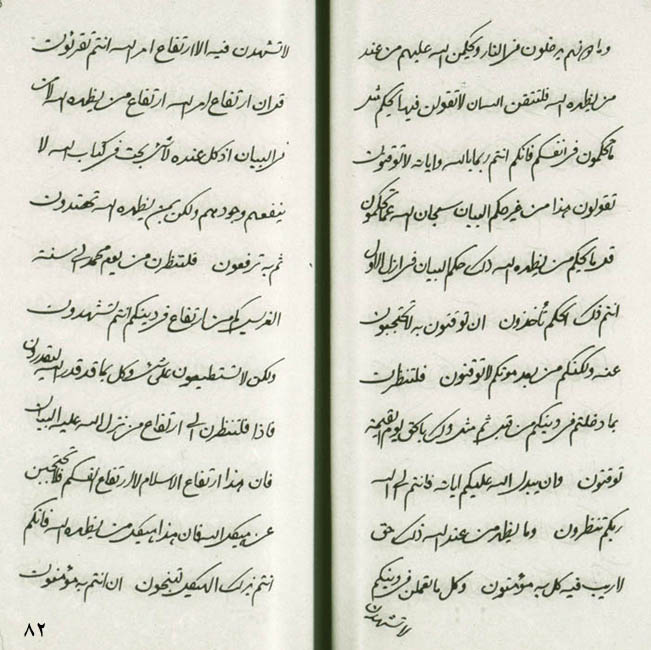 وما هم يدخلون في النار وليكلمن الله عليهم من عند
من يظهره الله فلتتقن الله ان لا تقولن فيما يحكم مثل
ما تحكمون في انفسكم فانكم انتم ربما بالله واياته لا توقنون
تقولون هذا من غير حكم البيان سبحان الله عما تحكمون
قل ما يحكم من يظهره الله ذلك حكم البيان في ازل الاول
انتم ذلك الحكم تأخذون ان توقنون به لا تحتجبون
عنه ولكنكم من بعد موتكم لا توقنون فلتنظرن
بما دخلتم في دينكم من قبل ثم مثل ذلك بالحق يوم القيمة
توقنون وان يبدل الله عليكم اياته فانتم الى الله
ربكم تنظرون وما يظهر من عند الله ذلك حق
لا ريب فيه كل به مؤمنون وكل ما تعملن في دينكم
لا تشهدن
لا تشهدن فيه الا ارتفاع امر الله انتم تقرئون
قد ان ارتفاع امر الله ارتفاع من يظهره الله لا من
في البيان اذ كل عنده لا شئ بحت في كتاب الله لا
ينفعهم وجودهم ولكن بمن يظهره الله تهتدون
ثم به ترفعون فلتنظرن من يوم محمد الى سنة
الغرس كم من ارتفاع في دينكم انتم تشهدون
ولكن لا تستطيعون على شئ وكل بما قد قدر الله ليقدرون
فاذا فلتنظرن الى ارتفاع من نزل الله عليه البيان
فان هذا ارتفاع الاسلام لا ارتفاع انفسكم فلا تحتجبن
عن هيكل الله فان هذا هيكل من يظهره الله فانكم
انتم بذلك الهيكل لتنجون ان انتم به مؤمنون
٨٢